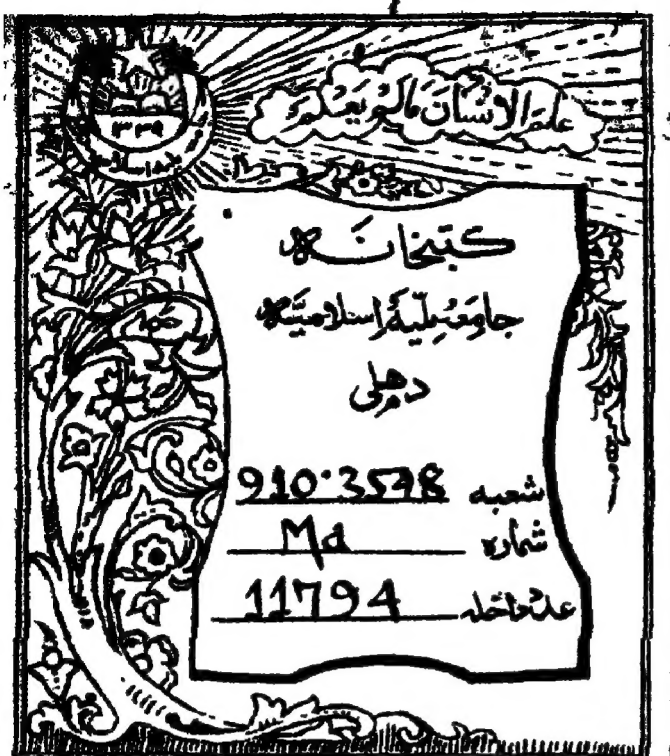 علم الانسان مالم يعلم
۱۳۳۹
کتبخانہ
جامعہ ملیہ اسلامیہ
دہلی
شعبہ 910.3548
شمارہ Md
عدد داخلہ 11794